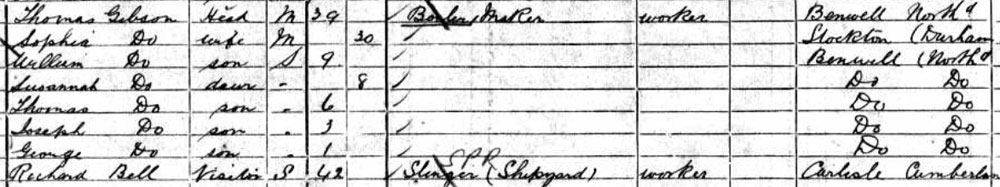 Thomas Gibson Head M 39 Boiler Maker worker Benwell North'd
Sophia Do wife M 30 Stockton (Durham
William Do son S 9 Benwell (North'd
Susannah Do daur - 8 Do Do
Thomas Do son - 6 Do Do
Joseph Do son - 3 Do Do
George Do son - 1 Do Do
Richard Bell Visitor S 42 Slinger (Shipyard) worker Carlisle Cumberlan